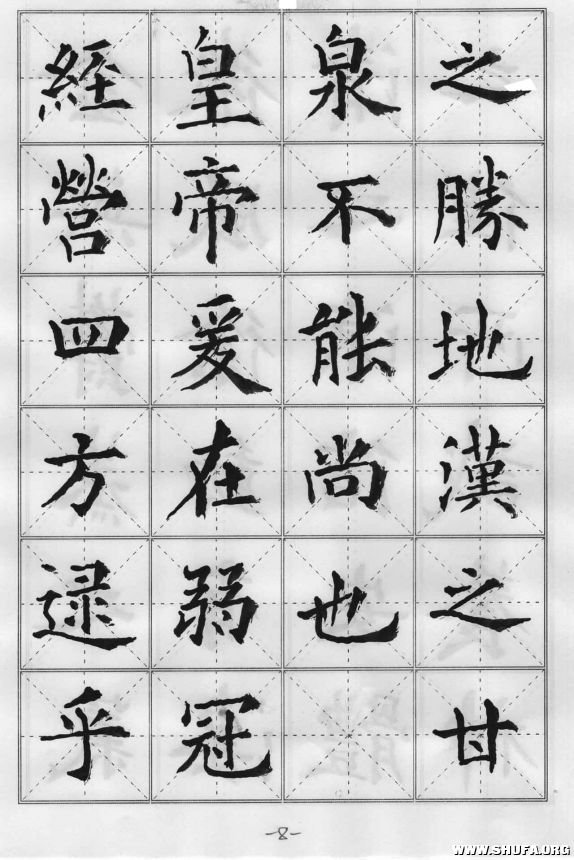 之勝地漢之甘
泉不能尚也
皇帝爰在弱冠
經營四方逮乎
-8-
WWW.SHUFA.ORG